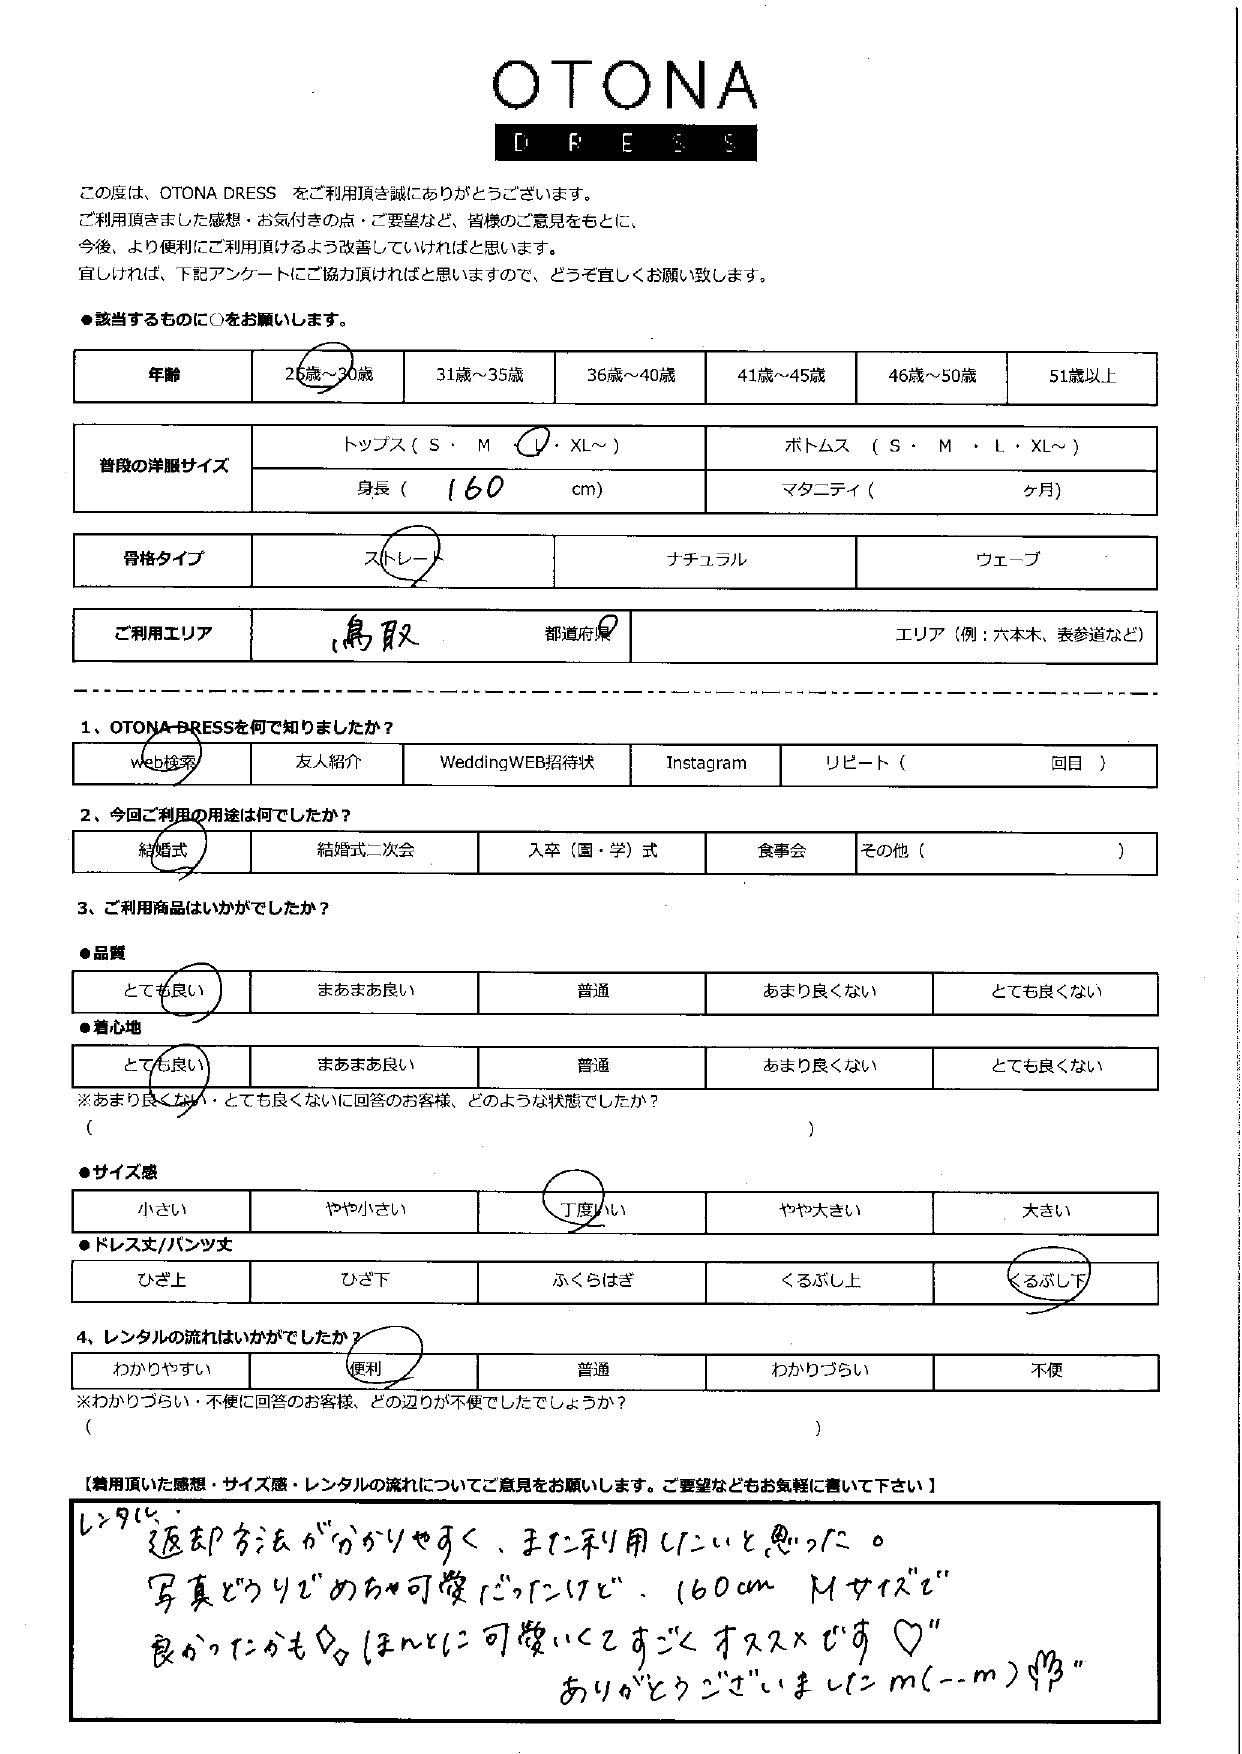 OTONA
DRESS
この度は、OTONA DRESS をご利用頂き誠にありがとうございます。
ご利用頂きました感想・お気付きの点・ご要望など、皆様のご意見をもとに、
今後、より便利にご利用頂けるよう改善していければと思います。
宜しければ、下記アンケートにご協力頂ければと思いますので、どうぞ宜しくお願い致します。
●該当するものに○をお願いします。
年齢 25歳～30歳 31歳～35歳 36歳～40歳 41歳～45歳 46歳～50歳 51歳以上
普段の洋服サイズ トップス ( S ・ M ・ L ・ XL～ ) ボトムス ( S ・ M ・ L ・ XL～ )
身長 ( 160 cm) マタニティ ( ヶ月)
骨格タイプ ストレート ナチュラル ウェーブ
ご利用エリア 鳥取 都道府県 エリア（例：六本木、表参道など）
1、OTONA DRESSを何で知りましたか？
web検索 友人紹介 WeddingWEB招待状 Instagram リピート（ 回目 ）
2、今回ご利用の用途は何でしたか？
結婚式 結婚式二次会 入卒（園・学）式 食事会 その他（ ）
3、ご利用商品はいかがでしたか？
●品質
とても良い まあまあ良い 普通 あまり良くない とても良くない
●着心地
とても良い まあまあ良い 普通 あまり良くない とても良くない
※あまり良くない・とても良くないに回答のお客様、どのような状態でしたか？
( )
●サイズ感
小さい やや小さい 丁度いい やや大きい 大きい
●ドレス丈/パンツ丈
ひざ上 ひざ下 ふくらはぎ くるぶし上 くるぶし下
4、レンタルの流れはいかがでしたか？
わかりやすい 便利 普通 わかりづらい 不便
※わかりづらい・不便に回答のお客様、どの辺りが不便でしたでしょうか？
( )
【着用頂いた感想・サイズ感・レンタルの流れについてご意見をお願いします。ご要望などもお気軽に書いて下さい】
レンタル、
返却方法が分かりやすく、また利用したいと思った。
写真どうりでめちゃ可愛だったけど、160cm Mサイズで
良かったかも。ほんとに可愛いくてすごくオススメです♡"
ありがとうございましたm(--m)